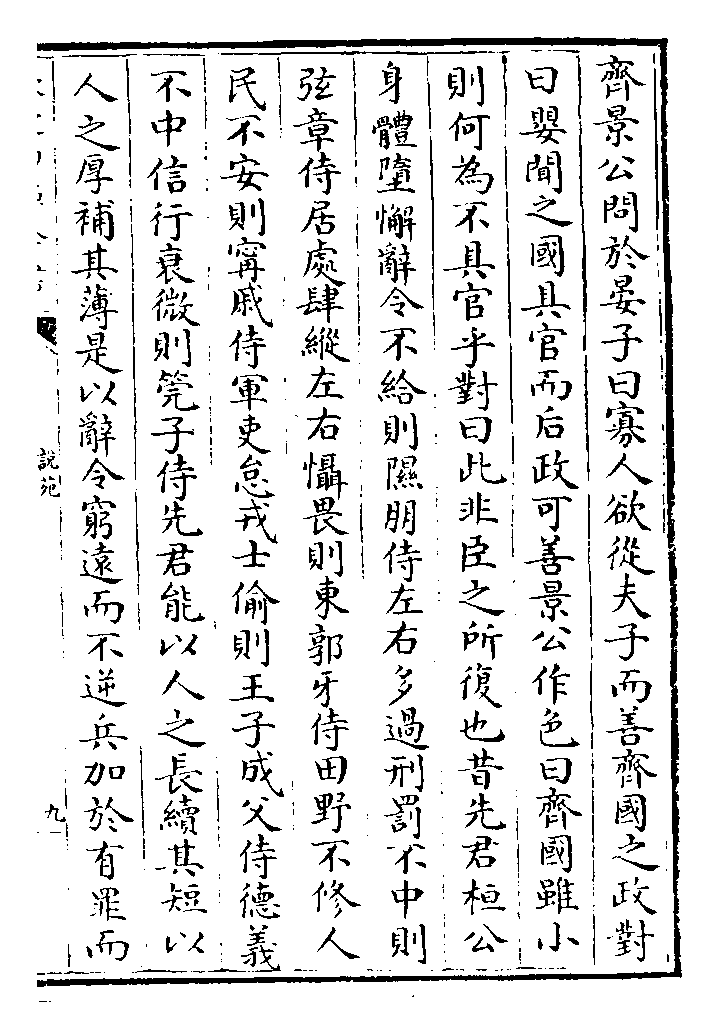 齊景公問於晏子曰寡人欲從夫子而善齊國之政對
曰嬰聞之國具官而后政可善景公作色曰齊國雖小
則何為不具官乎對曰此非臣之所復也昔先君桓公
身體墮懈辭令不給則隰朋侍左右多過刑罰不中則
弦章侍居處肆縱左右懾畏則東郭牙侍田野不修人
民不安則甯戚侍軍吏怠戎士偷則王子成父侍德義
不中信行衰微則筦子侍先君能以人之長續其短以
人之厚補其薄是以辭令窮遠而不逆兵加於有罪而
說苑
九